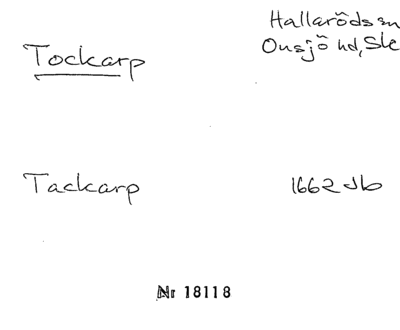 Tockarp
Hallaröds sn
Onsjö hd, Ske
Tackarp
1662 Jb
Nr 18118